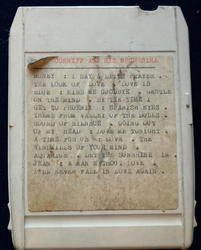 CONNIFF AND HIS ORCHESTRA
HONEY : I SAY A LITTLE PRAYER .
THE LOOK OF LOVE : LOVE IS
BLUE : KISS ME GOODBYE : GENTLE
ON THE MIND . BY THE TIME I
GET TO PHOENIX : SPANISH EYES
THEME FROM VALLEY OF THE DOLLS
SOUND OF SILENCE . GOING OUT
OF MY HEAD : LOVE ME TONIGHT
A TIME FOR US : LOVE . THE
WINDMILLS OF YOUR MIND .
AQUARIUS . LET THE SUNSHINE IN
JEAN : A MAN WITHOUT LOVE :
I'LL NEVER FALL IN LOVE AGAIN .